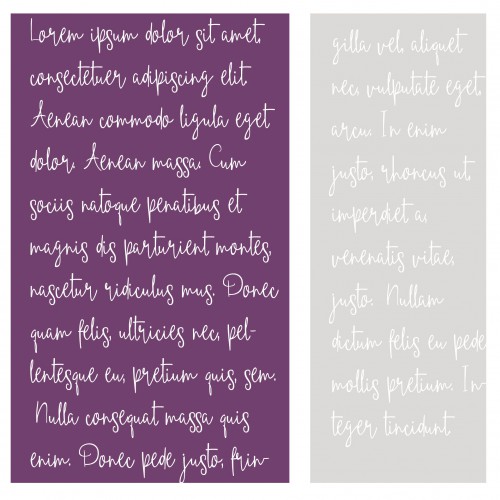 Lorem ipsum dolor sit amet,
consectetuer adipiscing elit.
Aenean commodo ligula eget
dolor. Aenean massa. Cum
sociis natoque penatibus et
magnis dis parturient montes,
nascetur ridiculus mus. Donec
quam felis, ultricies nec, pel-
lentesque eu, pretium quis, sem.
Nulla consequat massa quis
enim. Donec pede justo, frin-
gilla vel, aliquet
nec, vulputate eget,
arcu. In enim
justo, rhoncus ut,
imperdiet a,
venenatis vitae,
justo. Nullam
dictum felis eu pede
mollis pretium. In-
teger tincidunt